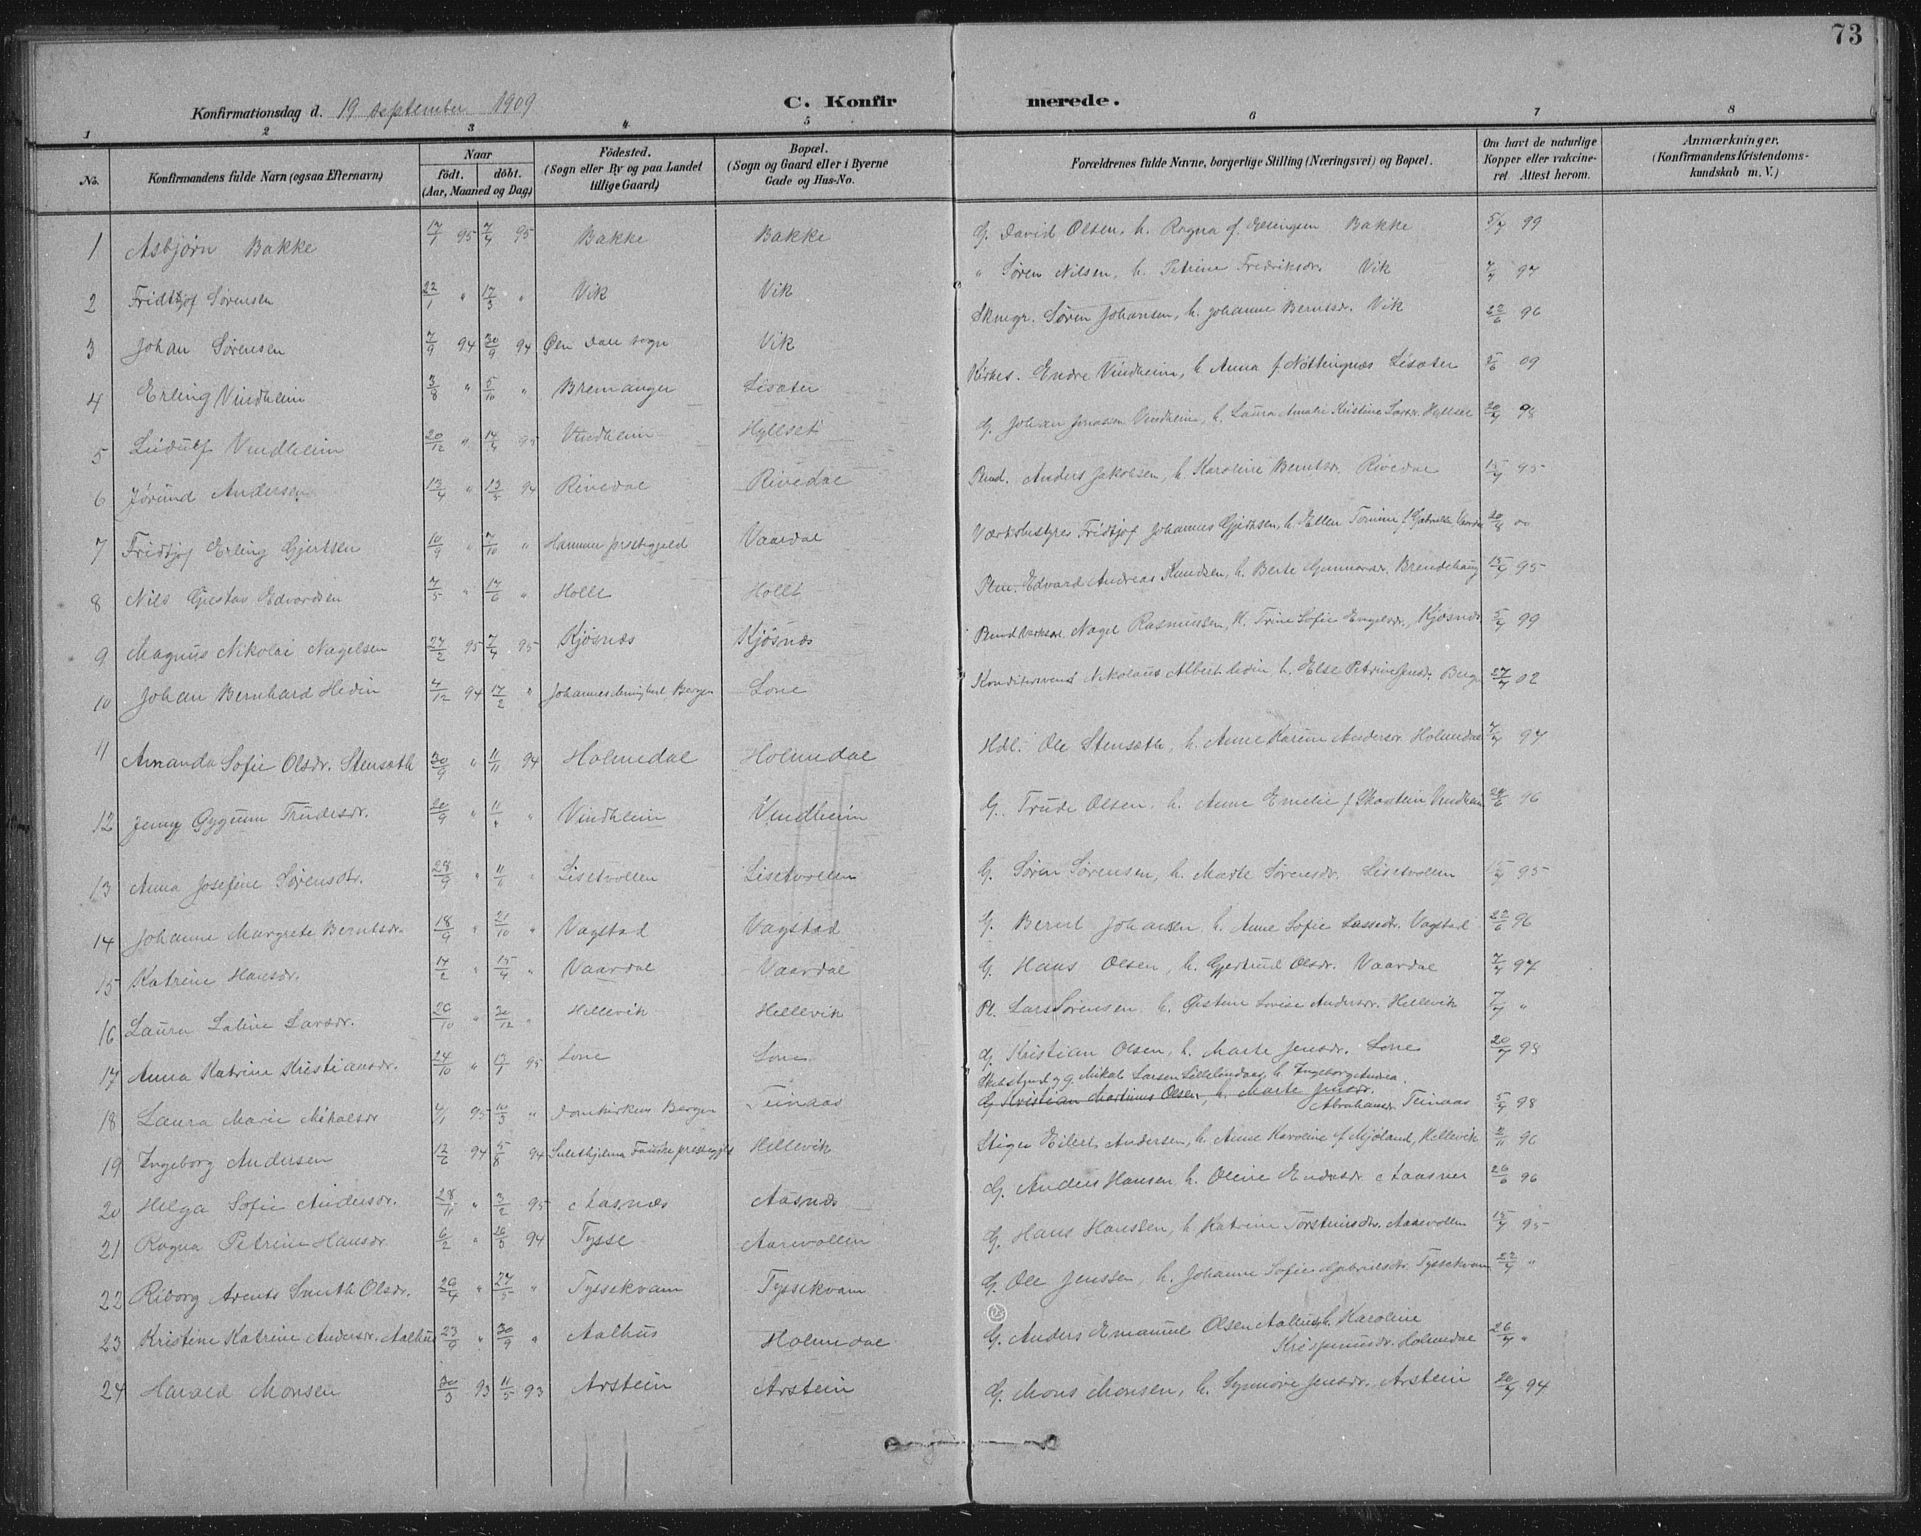 73
Konfirmationsdag d. 19 september 1909
C. Konfirmerede.
1 2 3 4 5 6 7 8
No. Konfirmandens fulde Navn (ogsaa Efternavn) Naar født. døbt. (Aar, Maaned og Dag) Fødested. (Sogn eller By og paa Landet tillige Gaard) Bopæl. (Sogn og Gaard eller i Byerne Gade og Hus-No. Forældrenes fulde Navne, borgerlige Stilling (Næringsvei) og Bopæl. Om havt de naturlige Kopper eller vakcineret. Attest herom. Anmærkninger. (Konfirmandens Kristendomskundskab m. V.)
1 Asbjørn Bakke 17/1 95 7/4 95 Bakke Bakke G. David Olsen, h. Ragna f. Bakke 5/7 99
2 Fridtjof Sørensen 22/1 " 17/3 " Vik Vik " Søren Nilsen, h. Petrine Fredriksdr. Vik 7/7 97
3 Johan Sørensen 7/9 94 30/9 94 sogn Vik Skmgr. Søren Johansen, h. Johanne Berntsdr. Vik 22/6 96
4 Erling Vindheim 3/8 " 5/10 " Bremanger Lisæter Kirkes. Endre Vindheim, h. Anna f. Nøttingnæs Lisæter 5/6 09
5 Liduulf Vindheim 20/12 " 14/4 95 Vindheim Hyllset G. Johan Jonassen Vindheim, h. Laura Amalie Kristine Larsdr. Hyllset 20/7 98
6 Jørund Andersen 13/4 " 13/5 94 Rivedal Rivedal Anders Jakobsen, h. Karoline Berntsdr. Rivedal 15/7 95
7 Fridtjof Erling Gjertsen 10/9 " 7/10 " Hammer prestegjeld Vaardal Værksbestyrer Fridtjof Johannes Gjertsen, h. Ellen f. Gabrielsen 20/8 00
8 Nils Gustav Edvardsen 7/5 " 17/6 " Holle Holle Plm. Edvard Andreas Knudsen, h. Berte Gunnarsdr. Brendehaug 15/7 95
9 Magnus Nikolai Nagelsen 27/2 95 7/4 95 Kjøsnæs Kjøsnæs Nagel Rasmussen, h. Trine Sofie Engelsdr., Kjøsnæs 5/7 99
10 Johan Bernhard Hedin 4/12 94 17/2 " Johannes menighed, Bergen Lone Nikolaus Albert Hedin h. Else Petrine Jensdr. Bergen 27/7 02
11 Amanda Sofie Olsdr. Stensæth 30/9 " 11/11 94 Holmedal Holmedal Hdl. Ole Stensæth, h. Anne Karine Andersdr. Holmedal 7/7 97
12 Jenny Trudesdr. 20/9 " 11/" " Vindheim Vindheim G. Trude Olsen, h. Anne Emelie f. Skarstein Vindheim 96
13 Anna Josefine Sørensdr. 28/9 " 11/" " Lisetvollen Lisetvollen G. Søren Sørensen, h. Marte Sørensdr. Lisetvollen 15/7 95
14 Johanne Margrete Berntsdr. 18/9 " 21/10 " Vagstad Vagstad G. Bernt Johansen, h. Anne Sofie Lassedr. Vagstad 22/6 96
15 Katrine Hansdr. 17/2 " 15/4 " Vaardal Vaardal G. Hans Olsen, h. Gjertrud Olsdr. Vaardal 7/7 97
16 Laura Larsdr. 29/10 " 30/12 " Hellevik Hellevik Pl. Lars Sørensen, h. Østine Lovise Andersdr. Hellevik 7/7 "
17 Anna Katrine Kristiansdr. 24/10 " 13/1 95 Lone Lone G. Kristian Olsen, h. Marte Jensdr. Lone 20/7 98
Mikal Larsen h. Ingeborg Andrea
18 Laura Marie Mikalsdr. 4/1 95 10/3 " Domkirken Bergen Teinaas G. Kristian Martinus Olsen, h. Marte Jensdr. Abrahamsdr. Teinaas 5/7 98
19 Ingeborg Andersen 12/6 94 5/8 94 Sulithjelma Fauske prestegjeld Hellevik Stiger Eilert Andersen, h. Anne Karoline f. Mjøland, Hellevik 2/11 96
20 Helga Sofie Andersdr. 28/11 " 3/2 95 Aasnæs Aasnæs G. Anders Hansen h. Oline Endresdr. Aasnæs 26/6 96
21 Ragna Petrine Hansdr. 6/2 " 26/3 94 Tysse Aarevollen G. Hans Hansen, h. Katrine Torsteinsdr. Aarevollen 15/7 95
22 Riborg Arents Smith Olsdr. 29/4 " 27/5 " Tyssekvam Tyssekvam G. Ole Jenssen, h. Johanne Sofie Gabrielsdr. Tyssekvam 22/7 "
23 Kristine Katrine Andersdr. Aalhus 23/9 " 30/9 " Aalhus Holmedal G. Anders Emanuel Olsen Aalhus, h. Karoline
Holmedal 26/7 "
24 Harald Monsen 30/3 93 11/5 93 Arstein Arstein G. Mons Monsen, h. Synnøve Jensdr. Arstein 20/7 94